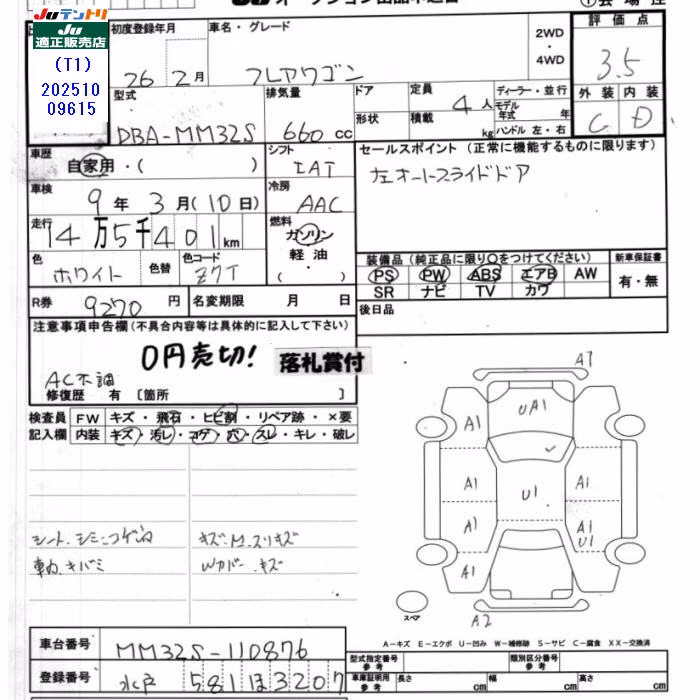 Juテントリ
Ju
適正販売店
(T1)
202510
09615
初度登録年月
26 2月
車名・グレード
フレアワゴン
2WD
・
4WD
評価点
3.5
外装 内装
C D
型式
DBA-MM32S
排気量
660 cc
ドア
形状
定員 4人
積載 kg
ディーラー・並行
モデル年式 年
ハンドル 左・右
車歴
自家用・( )
シフト
IAT
セールスポイント (正常に機能するものに限ります)
左オートスライドドア
車検
9年3月(10日)
冷房
AAC
走行
14万5千401km
燃料
ガソリン
軽油
( )
色
ホワイト
色替
色コード
Z7T
装備品(純正品に限り〇をつけてください)
PS PW ABS エアB AW
SR ナビ TV カワ
新車保証書
有・無
R券 9270円
名変期限 月 日
後日品
注意事項申告欄(不具合内容等は具体的に記入して下さい)
0円売切!
落札賞付
AC不調
修復歴 有 [箇所 ]
検査員
記入欄
FW キズ・飛石・ヒビ割・リペア跡・×要
内装 キズ・汚レ・コゲ・穴・スレ・キレ・破レ
シート、シミ、コゲ穴
キズ、M、スリキズ
Wカバー、キズ
A1
UA1
A1 A1
A1 U1 A1
A1 A1
U1
A1
スペア
A2
A-キズ E-エクボ U-凹み W-補修跡 S-サビ C-腐食 XX-交換済
車台番号 MM32S-110876
登録番号 水戸 581 ほ 3207
型式指定番号
参考
類別区分番号
参考
車庫証明用
参考
長さ cm
幅 cm
高さ cm